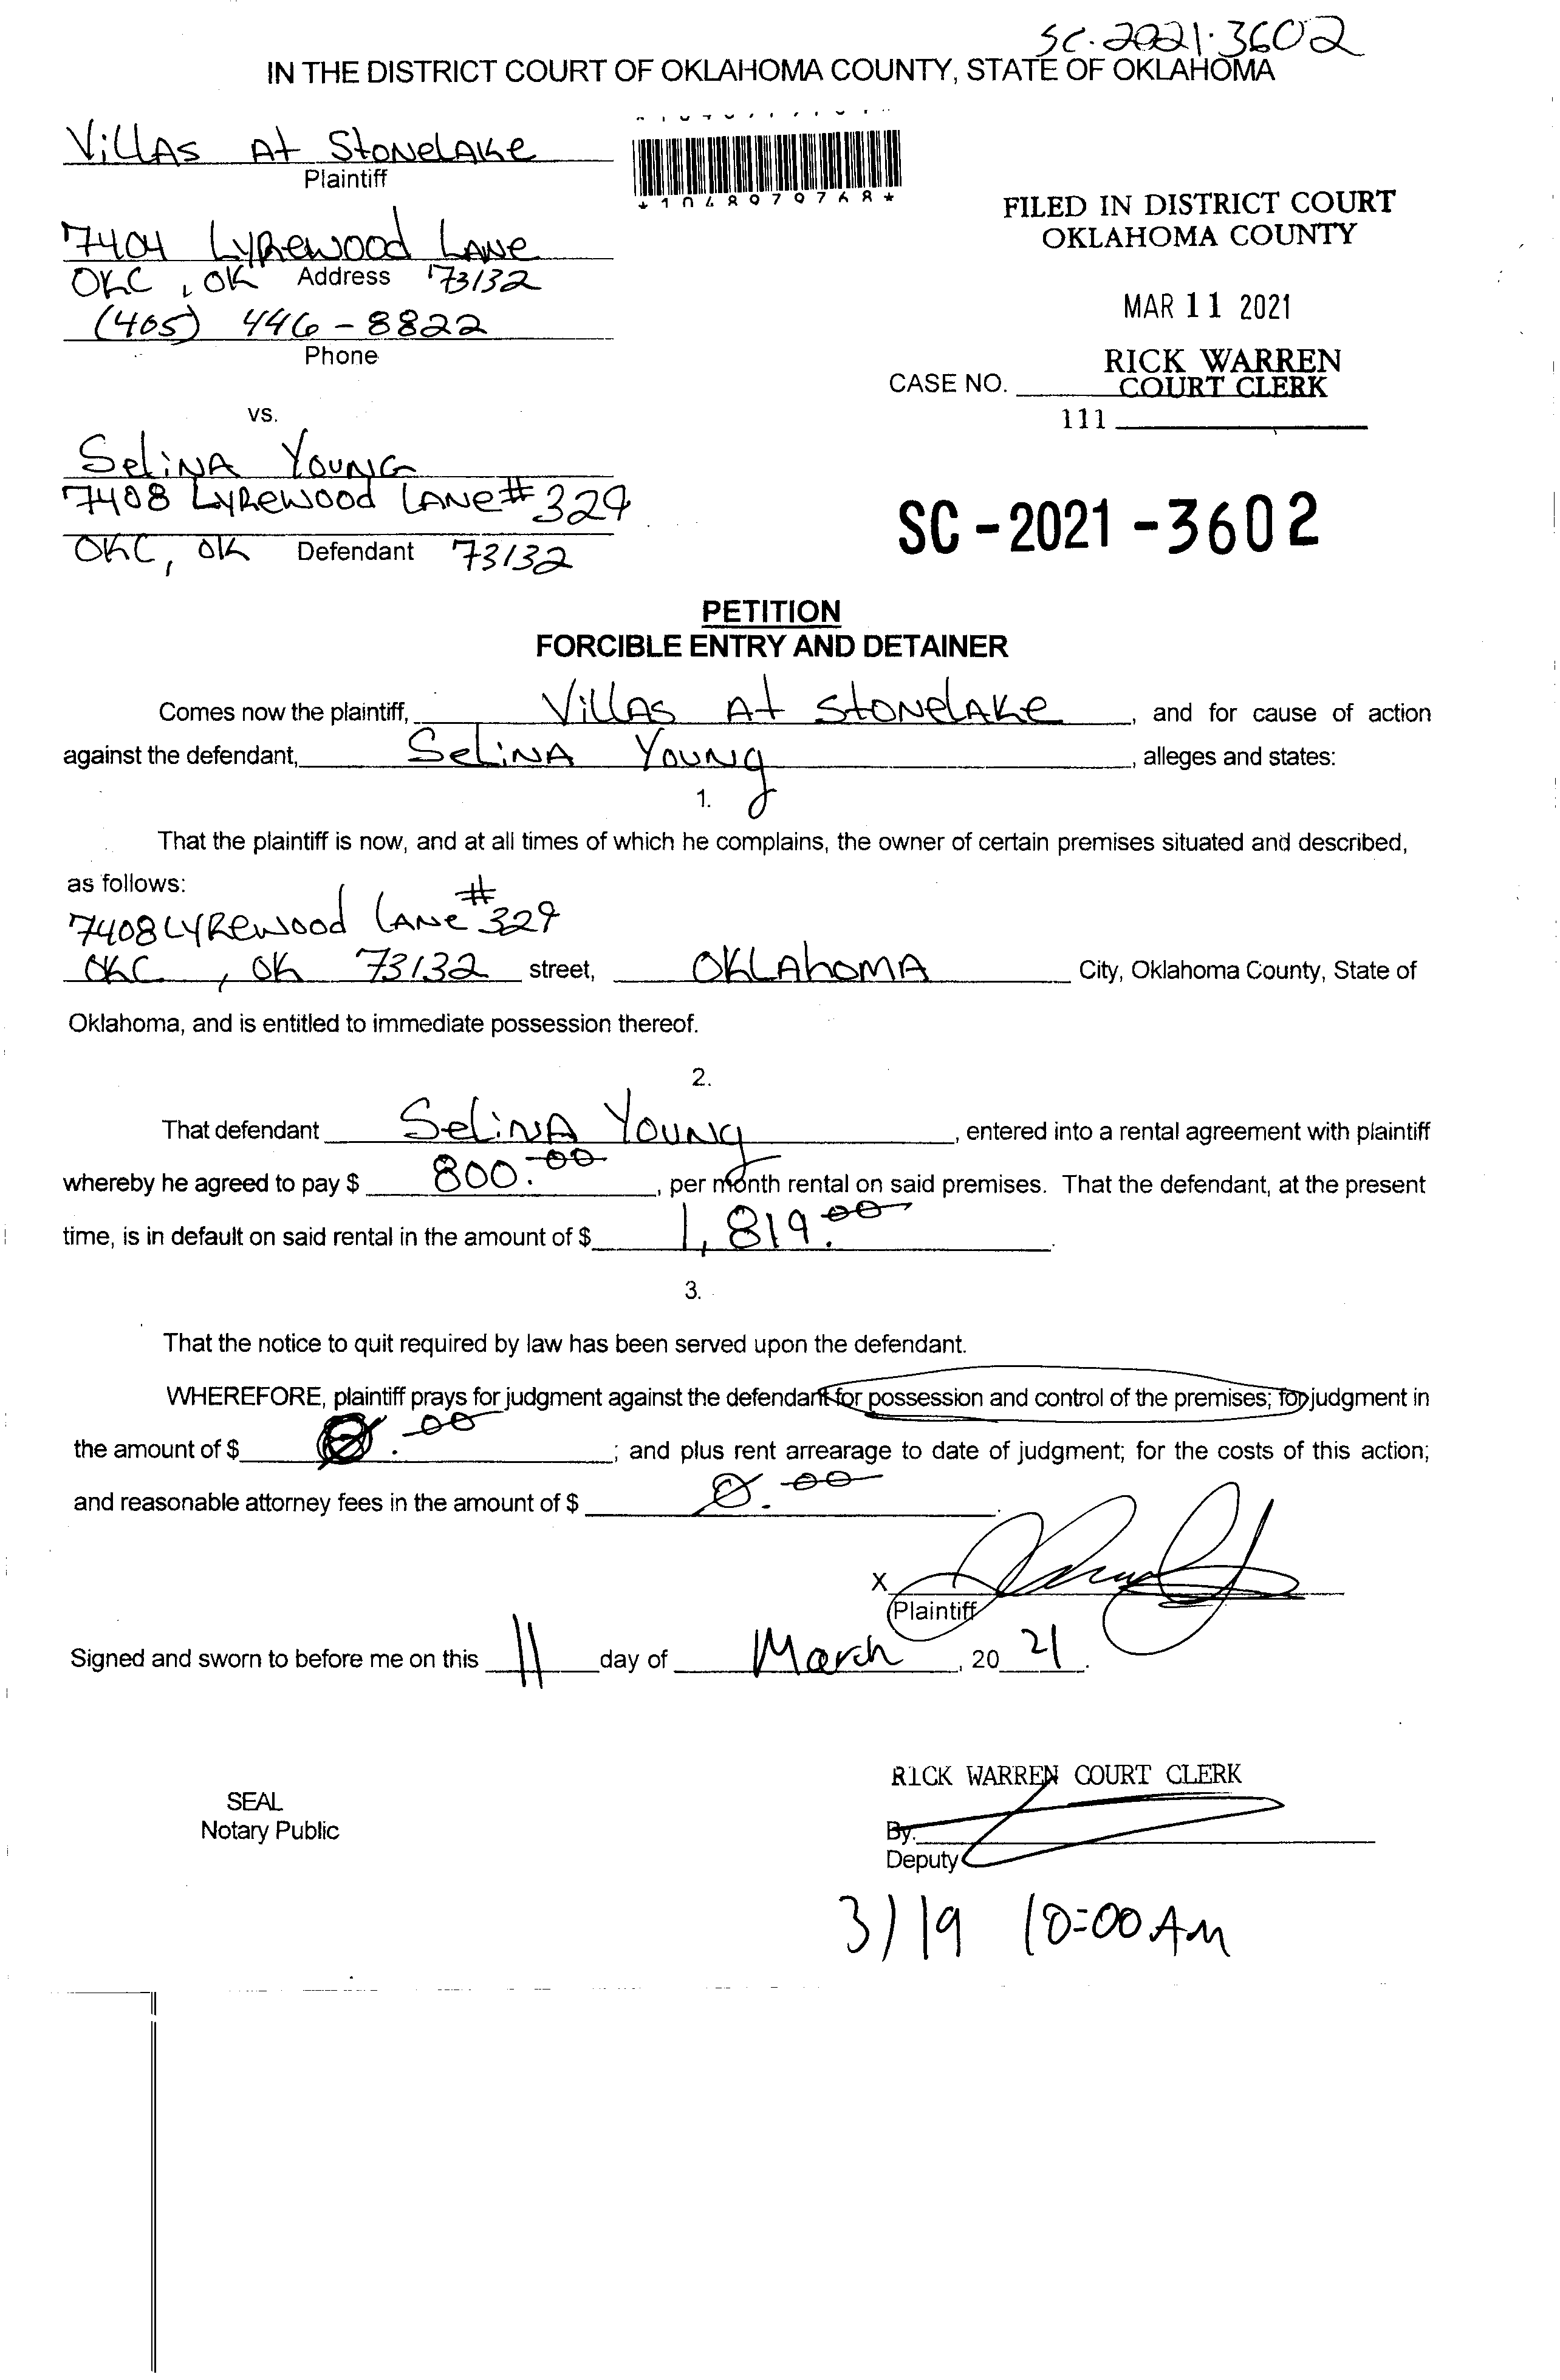 SC-2021-3602
IN THE DISTRICT COURT OF OKLAHOMA COUNTY, STATE OF OKLAHOMA
Villas At Stonelake
Plaintiff
*1048979768*
FILED IN DISTRICT COURT
OKLAHOMA COUNTY
7404 Lyrewood Lane
OKC, OK Address 73132
MAR 11 2021
(405) 446-8822
Phone
RICK WARREN
CASE NO. COURT CLERK
111
vs.
Selina Young
7408 Lyrewood Lane # 329
OKC, OK Defendant 73132
SC-2021-3602
PETITION
FORCIBLE ENTRY AND DETAINER
Comes now the plaintiff, Villas At Stonelake, and for cause of action
against the defendant, Selina Young, alleges and states:
1.
That the plaintiff is now, and at all times of which he complains, the owner of certain premises situated and described,
as follows:
7408 Lyrewood Lane #329
OKC, OK 73132 street, OKLAhOMA City, Oklahoma County, State of
Oklahoma, and is entitled to immediate possession thereof.
2.
That defendant Selina Young, entered into a rental agreement with plaintiff
whereby he agreed to pay $ 800.00, per month rental on said premises. That the defendant, at the present
time, is in default on said rental in the amount of $ 1,819.00.
3.
That the notice to quit required by law has been served upon the defendant.
WHEREFORE, plaintiff prays for judgment against the defendant for possession and control of the premises; for judgment in
the amount of $ 0.00; and plus rent arrearage to date of judgment; for the costs of this action;
and reasonable attorney fees in the amount of $ 0.00.
X
Plaintiff
Signed and sworn to before me on this 11 day of March, 2021.
RICK WARREN COURT CLERK
SEAL
Notary Public
By.
Deputy
3/19 10:00 AM